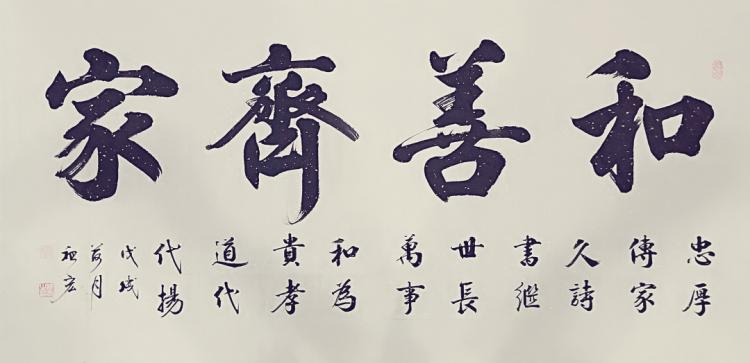 和善齊家
忠厚
傳家
久詩
書継
世長
萬事
和為
貴孝
道代
代揚
戊戌
荷月
祖宏